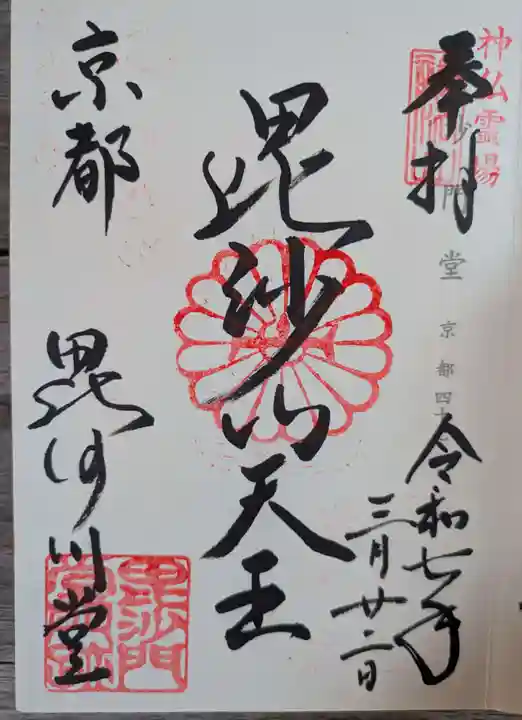 神仏霊場
奉拝
門堂 京都四十
令和七年
三月廿二日
毘沙門天王
京都
毘沙門堂
毘沙門